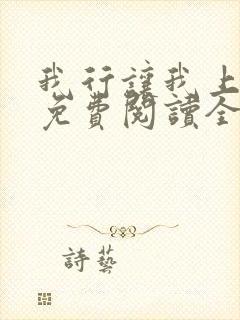 我行讓我上
免費閱讀全
詩藝